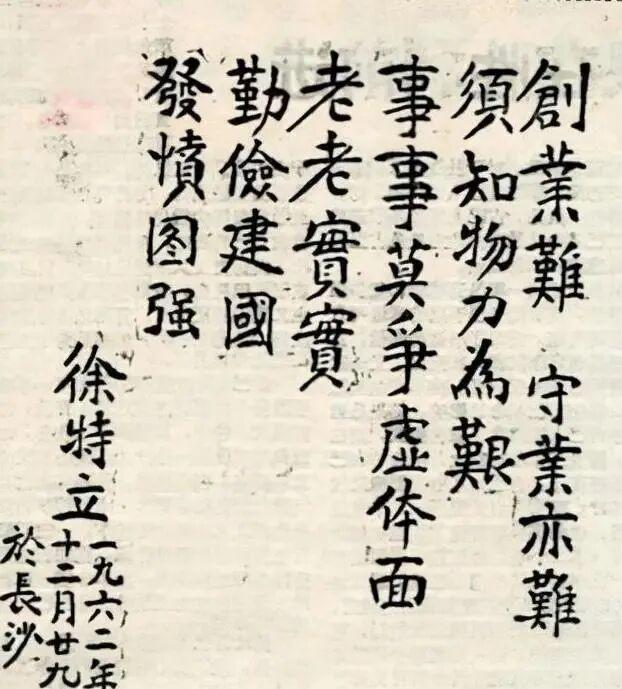 創業難 守業亦難
須知物力為艱
事事莫爭虛体面
老老實實
勤儉建國
發憤图强
徐特立
一九六二年
十二月廿九
於長沙